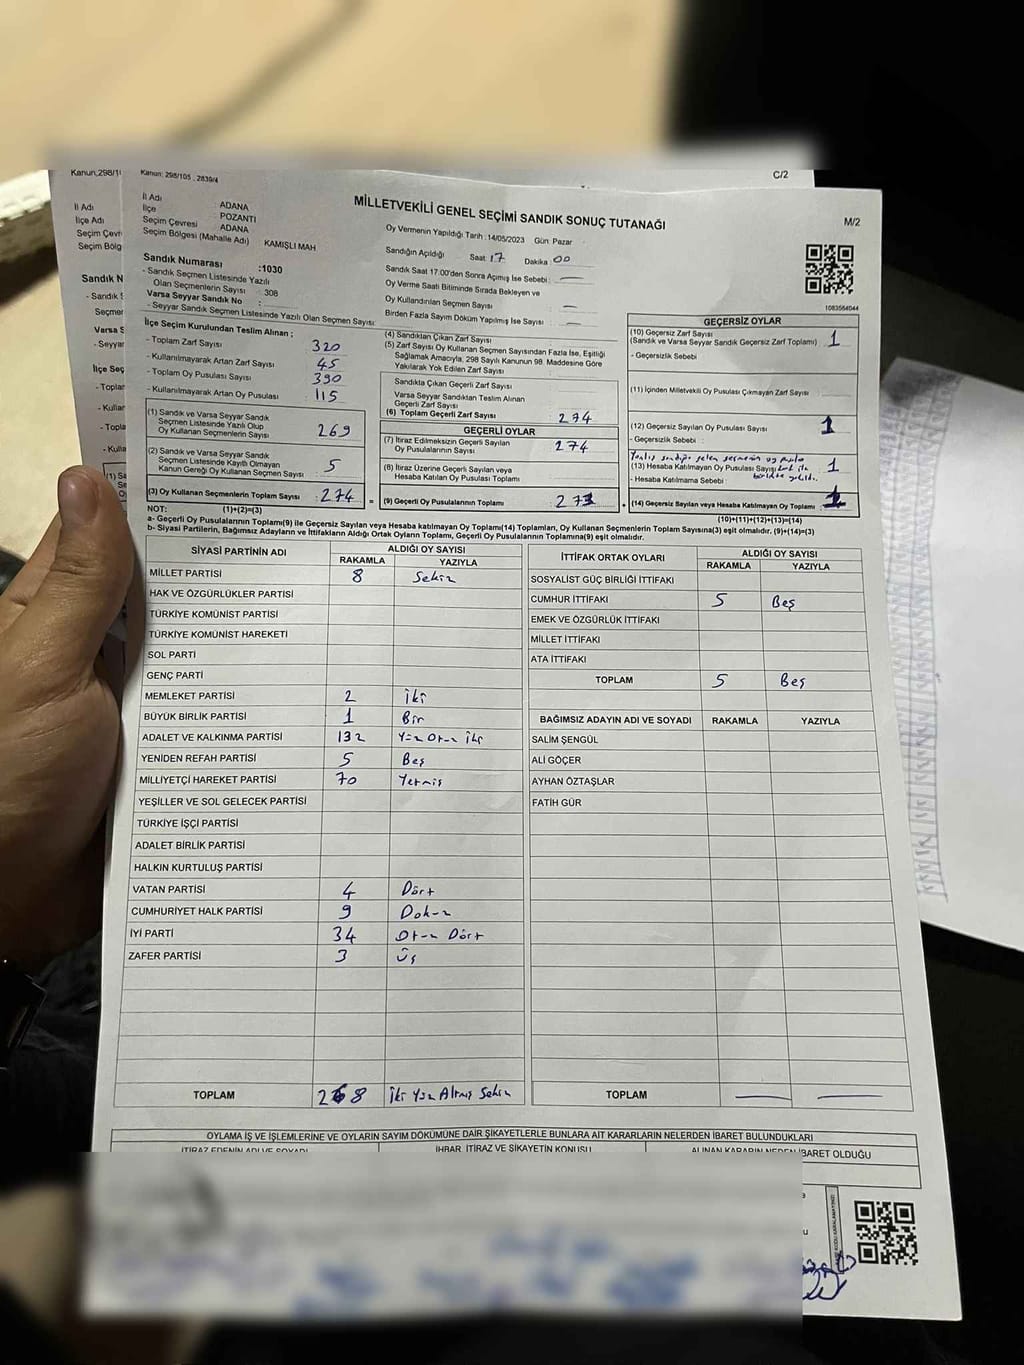 Kanun: 298/105 , 2839/4
C/2
M/2
MİLLETVEKİLİ GENEL SEÇİMİ SANDIK SONUÇ TUTANAĞI
İl Adı ADANA
İlçe POZANTI
Seçim Çevresi ADANA
Seçim Bölgesi (Mahalle Adı) KAMIŞLI MAH
Sandık Numarası :1030
- Sandık Seçmen Listesinde Yazılı
Olan Seçmenlerin Sayısı : 308
Varsa Seyyar Sandık No :
- Seyyar Sandık Seçmen Listesinde Yazılı Olan Seçmen Sayısı:
Oy Vermenin Yapıldığı Tarih :14/05/2023 Gün Pazar
Sandığın Açıldığı Saat: 17 Dakika 00
Sandık Saat 17.00'den Sonra Açımış İse Sebebi :
Oy Verme Saati Bitiminde Sırada Bekleyen ve
Oy Kullandırılan Seçmen Sayısı
Birden Fazla Sayım Döküm Yapılmış İse Sayısı :
1083584044
İlçe Seçim Kurulundan Teslim Alınan ;
- Toplam Zarf Sayısı : 320
- Kullanılmayarak Artan Zarf Sayısı : 45
- Toplam Oy Pusulası Sayısı : 390
- Kullanılmayarak Artan Oy Pusulası : 115
(1) Sandık ve Varsa Seyyar Sandık
Seçmen Listesinde Yazılı Olup
Oy Kullanan Seçmenlerin Sayısı : 269
(2) Sandık ve Varsa Seyyar Sandık
Seçmen Listesinde Kayıtlı Olmayan
Kanun Gereği Oy Kullanan Seçmen Sayısı : 5
(3) Oy Kullanan Seçmenlerin Toplam Sayısı : 274
(4) Sandıktan Çıkan Zarf Sayısı
(5) Zarf Sayısı Oy Kullanan Seçmen Sayısından Fazla İse, Eşitliği
Sağlamak Amacıyla, 298 Sayılı Kanunun 98. Maddesine Göre
Yakılarak Yok Edilen Zarf Sayısı
Sandıkta Çıkan Geçerli Zarf Sayısı
Varsa Seyyar Sandıktan Teslim Alınan
Geçerli Zarf Sayısı
(6) Toplam Geçerli Zarf Sayısı : 274
GEÇERLİ OYLAR
(7) İtiraz Edilmeksizin Geçerli Sayılan
Oy Pusulası Sayısı : 274
(8) İtiraz Üzerine Geçerli Sayılan veya
Hesaba Katılan Oy Pusulası Toplamı
(9) Geçerli Oy Pusulalarının Toplamı : 273
GEÇERSİZ OYLAR
(10) Geçersiz Zarf Sayısı
(Sandık ve Varsa Seyyar Sandık Geçersiz Zarf Toplamı) : 1
- Geçersizlik Sebebi :
(11) İçinden Milletvekili Oy Pusulası Çıkmayan Zarf Sayısı
(12) Geçersiz Sayılan Oy Pusulası Sayısı : 1
- Geçersizlik Sebebi :
Yanlış sandığa gelen seçmenin oy pusula
(13) Hesaba Katılmayan Oy Pusulası Sayısı : 1
- Hesaba Katılmama Sebebi :
(14) Geçersiz Sayılan veya Hesaba Katılmayan Oy Toplamı : 1
NOT: (1)+(2)=(3) (10)+(11)+(12)+(13)=(14)
a- Geçerli Oy Pusulalarının Toplamı(9) ile Geçersiz Sayılan veya Hesaba katılmayan Oy Toplamı(14) Toplamları, Oy Kullanan Seçmenlerin Toplam Sayısına(3) eşit olmalıdır. (9)+(14)=(3)
b- Siyasi Partilerin, Bağımsız Adayların ve İttifakların Aldığı Ortak Oyların Toplamı, Geçerli Oy Pusulalarının Toplamına(9) eşit olmalıdır.
SİYASİ PARTİNİN ADI ALDIĞI OY SAYISI
RAKAMLA YAZIYLA
MİLLET PARTİSİ 8 Sekiz
HAK VE ÖZGÜRLÜKLER PARTİSİ
TÜRKİYE KOMÜNİST PARTİSİ
TÜRKİYE KOMÜNİST HAREKETİ
SOL PARTİ
GENÇ PARTİ
MEMLEKET PARTİSİ 2 İki
BÜYÜK BİRLİK PARTİSİ 1 Bir
ADALET VE KALKINMA PARTİSİ 132 Yüz Otuz İki
YENİDEN REFAH PARTİSİ 5 Beş
MİLLİYETÇİ HAREKET PARTİSİ 70 Yetmiş
YEŞİLLER VE SOL GELECEK PARTİSİ
TÜRKİYE İŞÇİ PARTİSİ
ADALET BİRLİK PARTİSİ
HALKIN KURTULUŞ PARTİSİ
VATAN PARTİSİ 4 Dört
CUMHURİYET HALK PARTİSİ 9 Dokuz
İYİ PARTİ 34 Otuz Dört
ZAFER PARTİSİ 3 Üç
TOPLAM 268 İki Yüz Altmış Sekiz
İTTİFAK ORTAK OYLARI ALDIĞI OY SAYISI
RAKAMLA YAZIYLA
SOSYALİST GÜÇ BİRLİĞİ İTTİFAKI
CUMHUR İTTİFAKI 5 Beş
EMEK VE ÖZGÜRLÜK İTTİFAKI
MİLLET İTTİFAKI
ATA İTTİFAKI
TOPLAM 5 Beş
BAĞIMSIZ ADAYIN ADI VE SOYADI RAKAMLA YAZIYLA
SALİM ŞENGÜL
ALİ GÖÇER
AYHAN ÖZTAŞLAR
FATİH GÜR
TOPLAM
OYLAMA İŞ VE İŞLEMLERİNE VE OYLARIN SAYIM DÖKÜMÜNE DAİR ŞİKAYETLERLE BUNLARA AİT KARARLARIN NELERDEN İBARET BULUNDUKLARI
İTİRAZ EDENİN ADI VE SOYADI İHBAR, İTİRAZ VE ŞİKAYETİN KONUSU ALINAN KARARIN NEDEN İBARET OLDUĞU